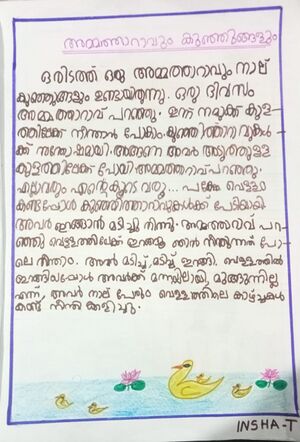 അമ്മത്താറാവും കുഞ്ഞുങ്ങളും
ഒരിടത്ത് ഒരു അമ്മത്താറാവും നാല്
കുഞ്ഞുങ്ങളും ഉണ്ടായിരുന്നു. ഒരു ദിവസം
അമ്മത്താറാവ് പറഞ്ഞു. ഇന്ന് നമുക്ക് കുള-
ത്തിലേക്ക് നീന്താൻ പോകാം. കുഞ്ഞിത്താറാവുകൾ-
ക്ക് സന്തോഷമായി. അങ്ങനെ അവർ അടുത്തുള്ള
കുളത്തിലേക്ക് പോയി അമ്മത്താറാവ് പറഞ്ഞു.
എല്ലാവരും എന്റെകൂടെ വരൂ... പക്ഷേ വെള്ളം
കണ്ടപ്പോൾ കുഞ്ഞിത്താറാവുകൾക്ക് പേടിയായി
അവർ ഇറങ്ങാൻ മടിച്ചു നിന്നു. അമ്മത്താറാവ് പറ-
ഞ്ഞു വെള്ളത്തിലേക്ക് ഇറങ്ങൂ ഞാൻ നീന്തുന്നത് പോ-
ലെ നീന്താം. അവർ മടിച്ച് മടിച്ച് ഇറങ്ങി. വെള്ളത്തിൽ
ഇറങ്ങിയപ്പോൾ അവർക്ക് മനസ്സിലായി മുങ്ങുന്നില്ല
എന്ന്, അവർ നാല് പേരും വെള്ളത്തിലെ കാഴ്ച്ചകൾ
കണ്ട് നീന്തി കളിച്ചു.
INSHA-T